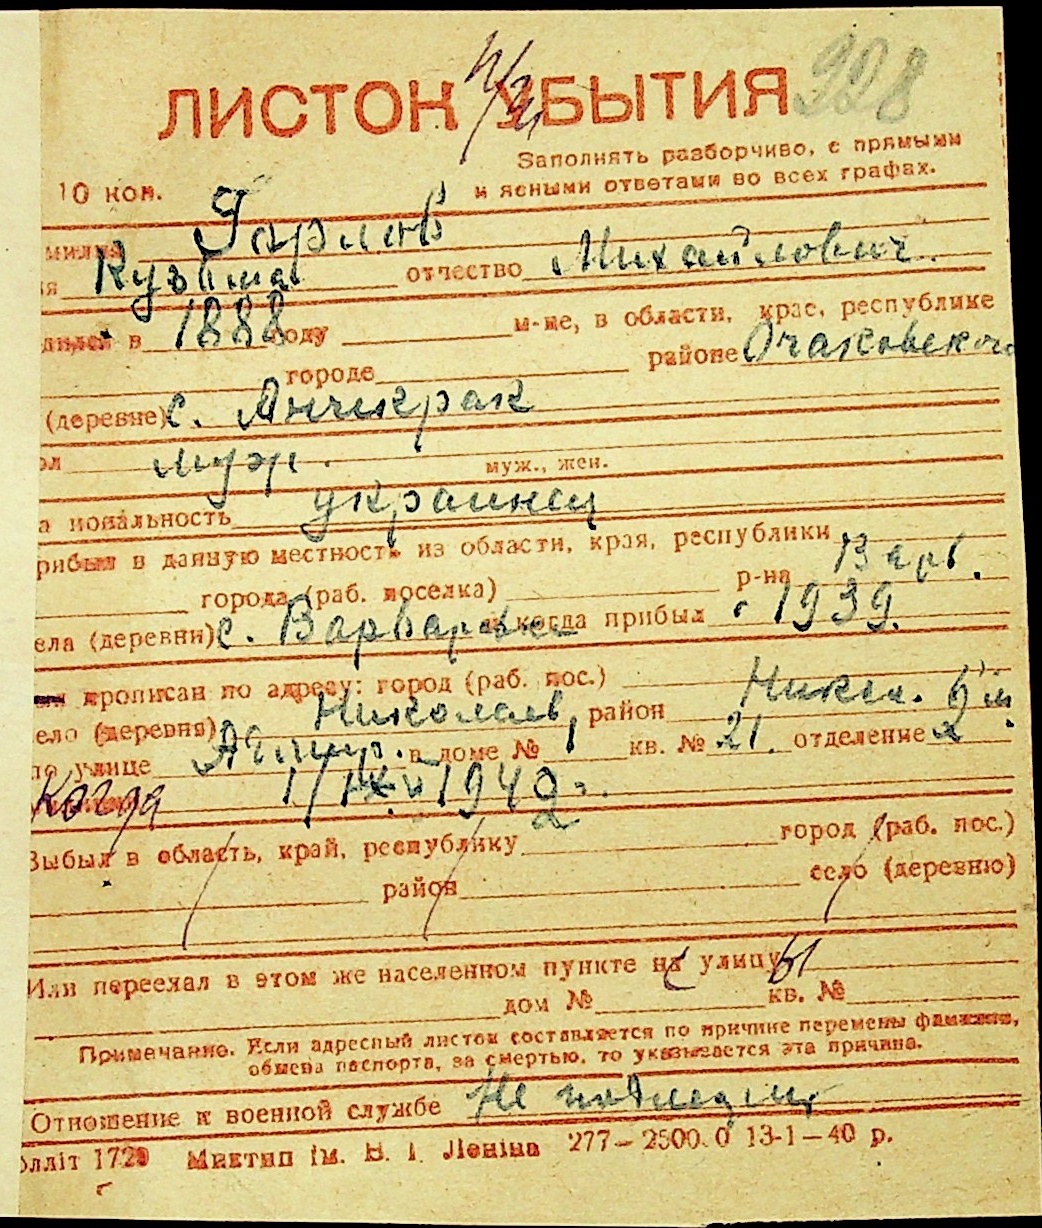 328
ЛИСТОК УБЫТИЯ
Заполнять разборчиво, с прямыми
10 коп. и ясными ответами во всех графах.
милия
я Кузьма отчество Михайлович
дился в 1888 году м-це, в области, крае, республике
городе районе Очаковского
(деревне) с. Анчекрак
ол муж. муж., жен.
на иональность украинец
рибыл в данную местность из области, края, республики
города (раб. поселка) р-на Варв.
ела (деревни) с. Варваровка и когда прибыл с 1939.
прописан по адресу: город (раб. пос.)
ело (деревня) Николаев, район Никол.
по улице в доме № 1 кв. № 21. отделение 2
Когда 1/IX 1942 г.
Выбыл в область, край, республику город (раб. пос.)
район село (деревню)
Или переехал в этом же населенном пункте на улицу
дом № кв. №
Примечание. Если адресный листок составляется по причине перемены фамилии,
обмена паспорта, за смертью, то указывается эта причина.
Отношение к военной службе Не подлежит
лліт 1720 Миктип ім. В. І. Леніна 277—2500.0 13-1—40 р.